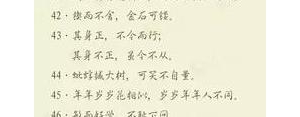 42·锲而不舍，金石可镂。
43·其身正，不令而行；
其身不正，虽令不从。
44·蚍蜉撼大树，可笑不自量。
45·年年岁岁花相似，岁岁年年人不同。
46·敏而好学，不耻下问。